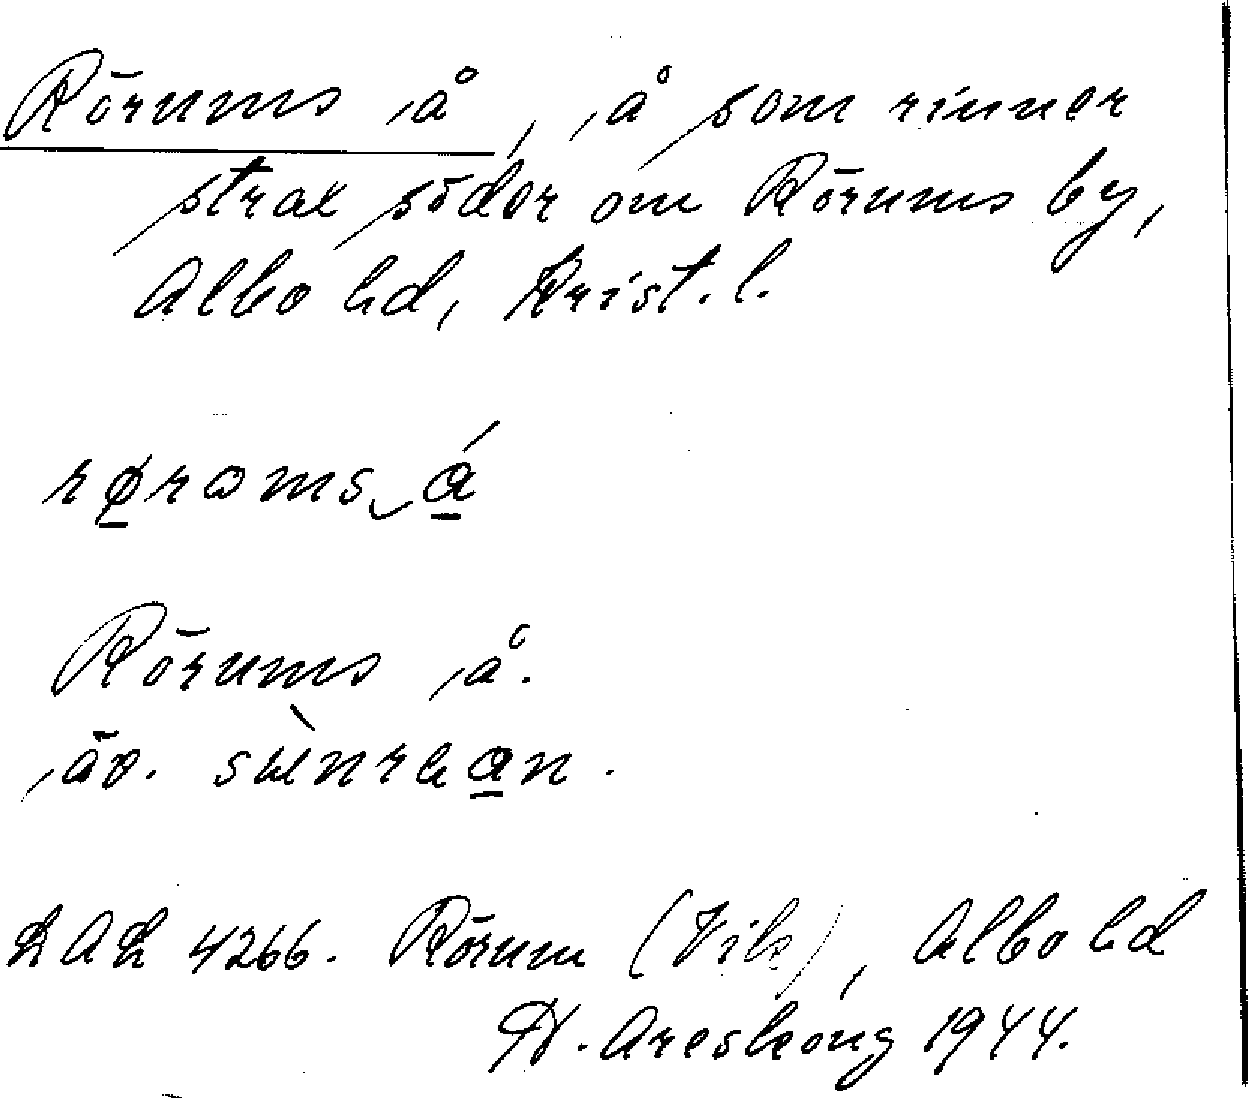 Rörums å, å som rinner
strax söder om Rörums by,
Albo hd, Krist. l.
rørωms‿á
Rörums å.
äv.
LAL 4266. Rörum (Vik), Albo hd
H. Areskoug 1944.